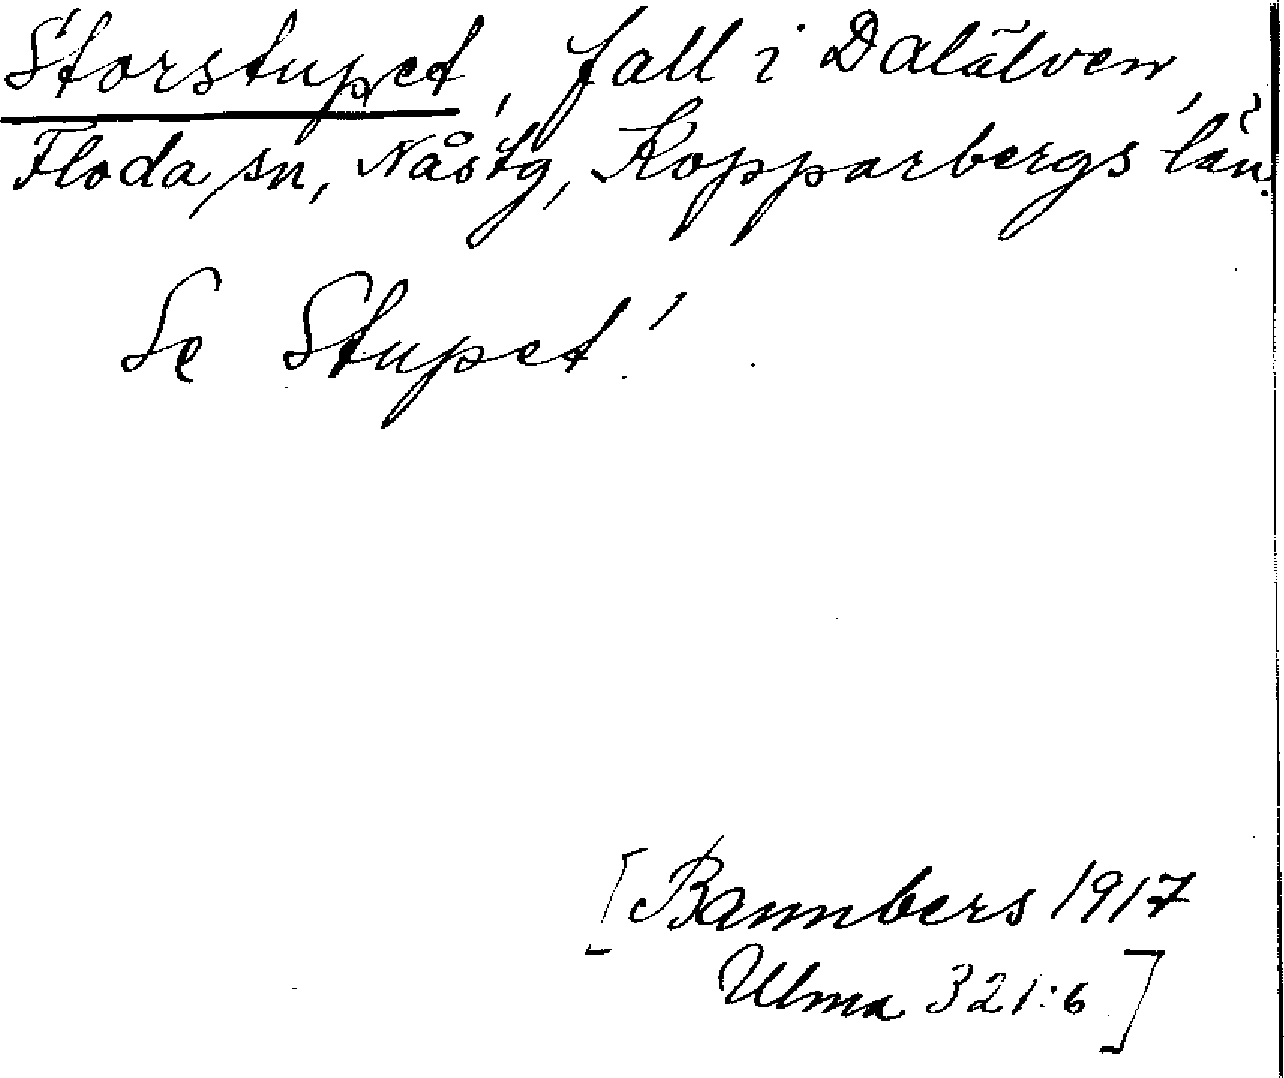 Storstupet, fall i Dalälven,
Floda sn, Nåstg, Kopparbergs län.
Se Stupet!
[Bannbers 1917
Ulma 321:6]